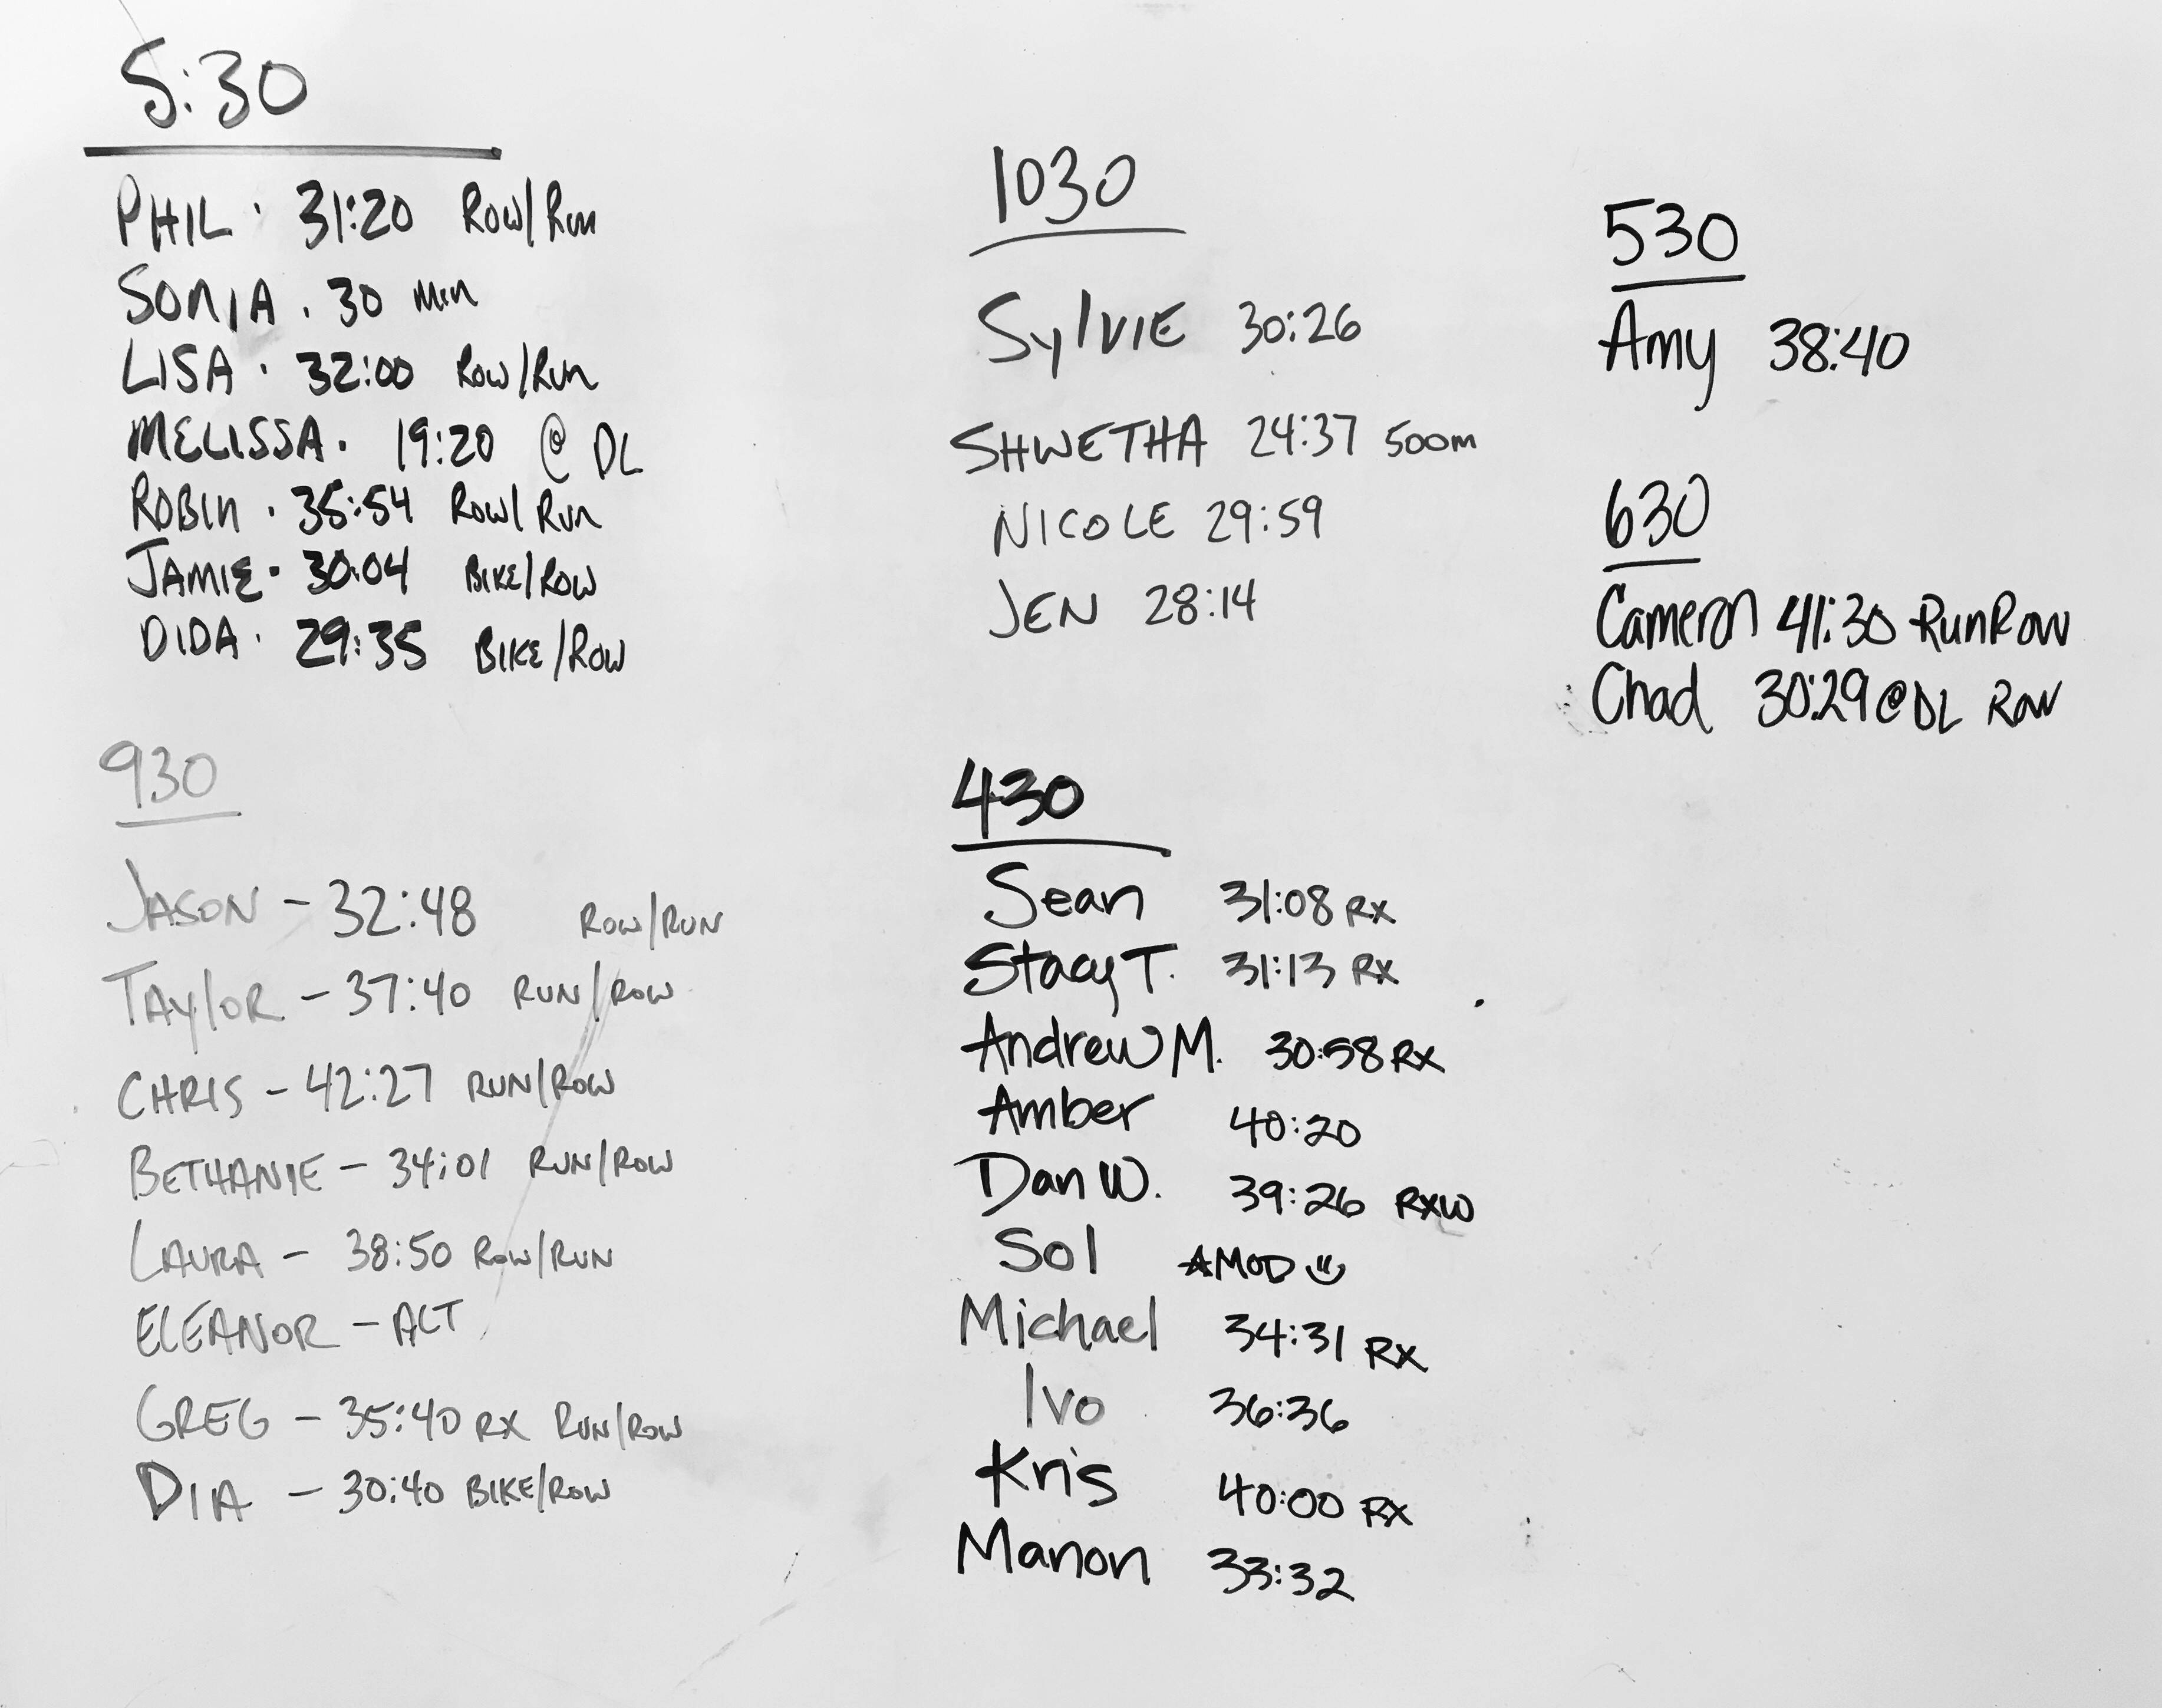 5:30
PHIL · 31:20 Row/Run
SONIA . 30 Min
LISA · 32:00 Row/Run
MELISSA. 19:20 @ DL
ROBIN · 35:54 Row/Run
JAMIE · 30:04 BIKE/ROW
DIDA · 29:35 BIKE/ROW
930
JASON - 32:48 ROW/RUN
TAYLOR - 37:40 RUN/ROW
CHRIS - 42:27 RUN/ROW
BETHANIE - 34:01 RUN/ROW
LAURA - 38:50 ROW/RUN
ELEANOR - ALT
GREG - 35:40 RX RUN/ROW
DIA - 30:40 BIKE/ROW
1030
SylVIE 30:26
SHWETHA 24:37 500m
NICOLE 29:59
JEN 28:14
430
Sean 31:08 RX
Stacy T. 31:13 RX
Andrew M. 30:58 RX
Amber 40:20
Dan W. 39:26 RXW
Sol ☆MOD ☺
Michael 34:31 RX
Ivo 36:36
Kris 40:00 RX
Manon 33:32
530
Amy 38:40
630
Cameron 41:30 RunRow
Chad 30:29 @ DL Row